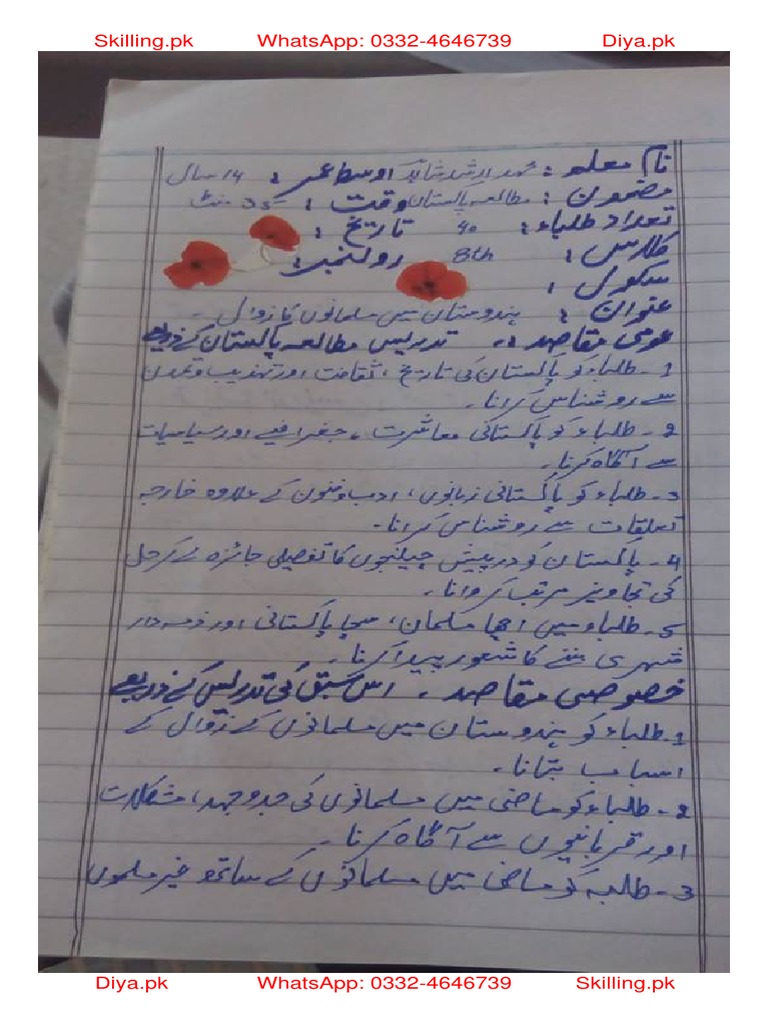 Skilling.pk WhatsApp: 0332-4646739 Diya.pk
نام معلم : محمد ارشد شاہد اوسط عمر : 14 سال
مضمون : مطالعہ پاکستان وقت : 35 منٹ
تعداد طلباء : 40 تاریخ :
کلاس : 8th رولنمبر :
سکول :
عنوان : ہندوستان میں مسلمانوں کا زوال -
عمومی مقاصد :- تدریس مطالعہ پاکستان کے ذریعے
1- طلباء کو پاکستان کی تاریخ ، ثقافت اور تہذیب و تمدن
سے روشناس کرانا -
2- طلباء کو پاکستانی معاشرت ، جغرافیے اور سیاسیات
سے آگاہ کرنا -
3- طلباء کو پاکستانی زبانوں ، ادب و فنون کے علاوہ خارجہ
تعلقات سے روشناس کرانا -
4- پاکستان کو درپیش چیلنجوں کا تفصیلی جائزہ لے کر حل
کی تجاویز مرتب کروانا -
5- طلباء میں اچھا مسلمان ، سچا پاکستانی اور ذمہ دار
شہری بننے کا شعور پیدا کرنا -
خصوصی مقاصد - اس سبق کی تدریس کے ذریعے
1- طلباء کو ہندوستان میں مسلمانوں کے زوال کے
اسباب بتانا -
2- طلباء کو ماضی میں مسلمانوں کی جدوجہد ، مشکلات
اور قربانیوں سے آگاہ کرنا -
3- طلبہ کو ماضی میں مسلمانوں کے ساتھ غیر مسلموں
Diya.pk WhatsApp: 0332-4646739 Skilling.pk